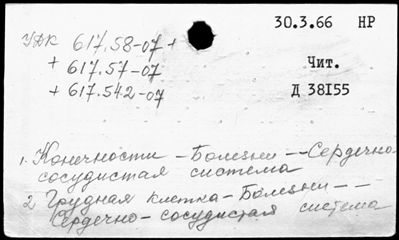 30.3.66 НР
УДК 617.58-07 +
+ 617.57-07
+ 617.542-07
Чит.
Д 38I55
1. Конечности - Болезни -- Сердечно-
сосудистая система
2 Грудная клетка - Болезни --
Сердечно-сосудистая система